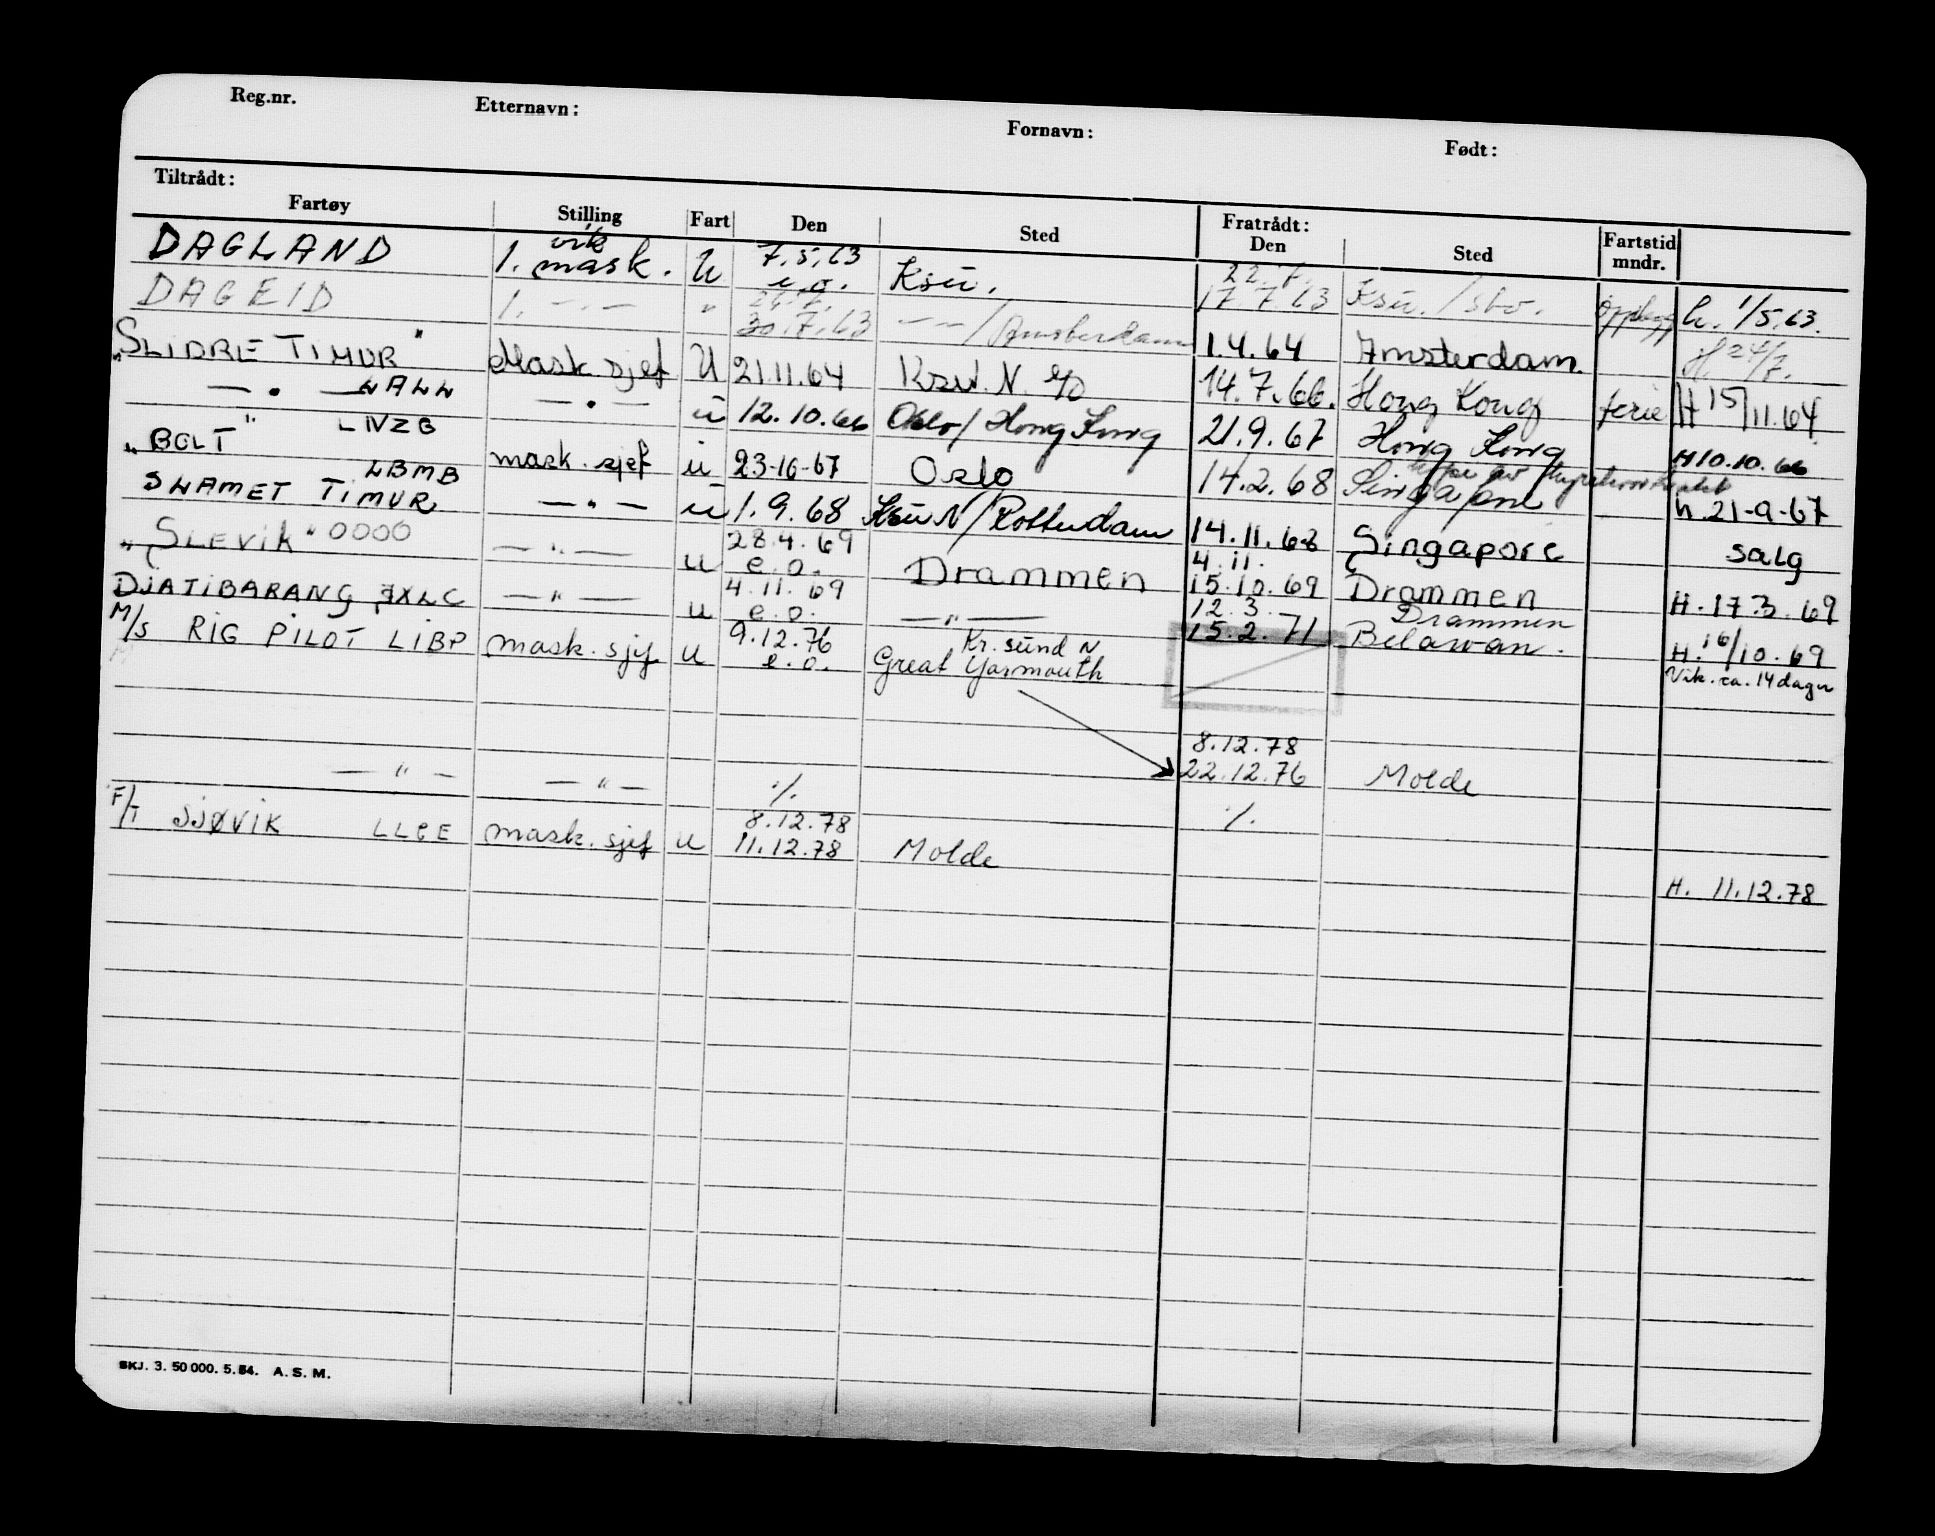 Reg.nr. Etternavn: Fornavn: Født:
Tiltrådt: Fratrådt:
Fartøy Stilling Fart Den Sted Den Sted Fartstid mndr.
DAGLAND 1. vik mask. U 7.5.63 e.o. Ksu. 22.7. 17.7.63 Ksu. / sbv. h. 1/5.63.
DAGEID 1. — " — " 24.7. 30.7.63 — " — / Amsterdam 1.4.64 Amsterdam. H. 24/7.
"SLIDRE TIMUR" Mask.sjef U 21.11.64 Ksu. N. 14.7.66. Hong Kong ferie H 15/11.64
— " — LALL — " — u 12.10.66 Oslo / Hong Kong 21.9.67 Hong Kong H 10.10.66
"BOLT" LIVZB mask.sjef u 23-10-67 Oslo 14.2.68 Singapore h. 21-9-67
SLAMET TIMUR LBMB — " — u 1.9.68 Ksu N / Rotterdam 14.11.68 Singapore salg
"SLEVIK" OOOO — " — u 28.4.69 e.o. Drammen 4.11. 15.10.69 Drammen H. 17.3.69
DJATIBARANG JXLC — " — u 4.11.69 e.o. — " — 12.3. 15.2.71 Drammen Belawan. H. 16/10.69
M/S RIG PILOT LIBP mask.sjef u 9.12.76 e.o. Kr.sund N Great Yarmouth Vik. ca. 14 dager
8.12.78
— " — — " — % 22.12.76 Molde
F/T SJØVIK LLCE mask.sjef u 8.12.78 11.12.78 Molde %
H. 11.12.78
SKJ. 3. 50 000. 5.54. A. S. M.